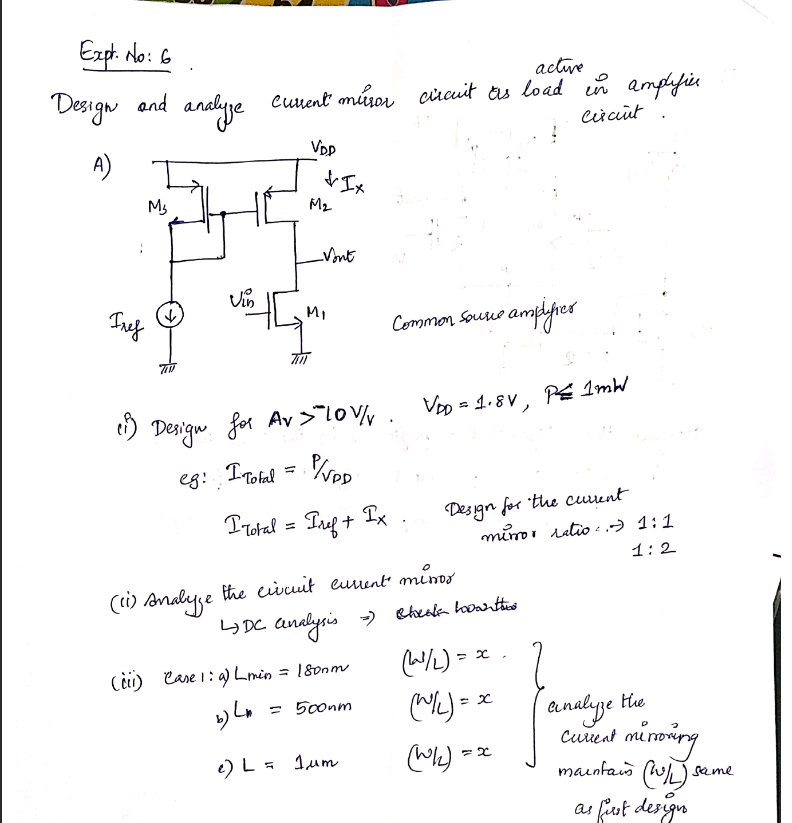 Expt. No: 6
active
Design and analyze current mirror circuit as load in amplifier
circuit.
A)
VDD
↓ Ix
M3
M2
Vout
Vin
M1
Iref
Common source amplifier
(i) Design for Av > -10 V/V. VDD = 1.8V, P≤ 1mW
eg: ITotal = P/VDD
ITotal = Iref + Ix. Design for the current
mirror ratio → 1:1
1:2
(ii) Analyze the circuit current mirror
↳ DC analysis ⇒ check
(iii) Case 1: a) Lmin = 180nm (W/L) = x.
b) L = 500nm (W/L) = x
c) L = 1um (W/L) = x
analyze the
current mirroring
maintain (W/L) same
as first design